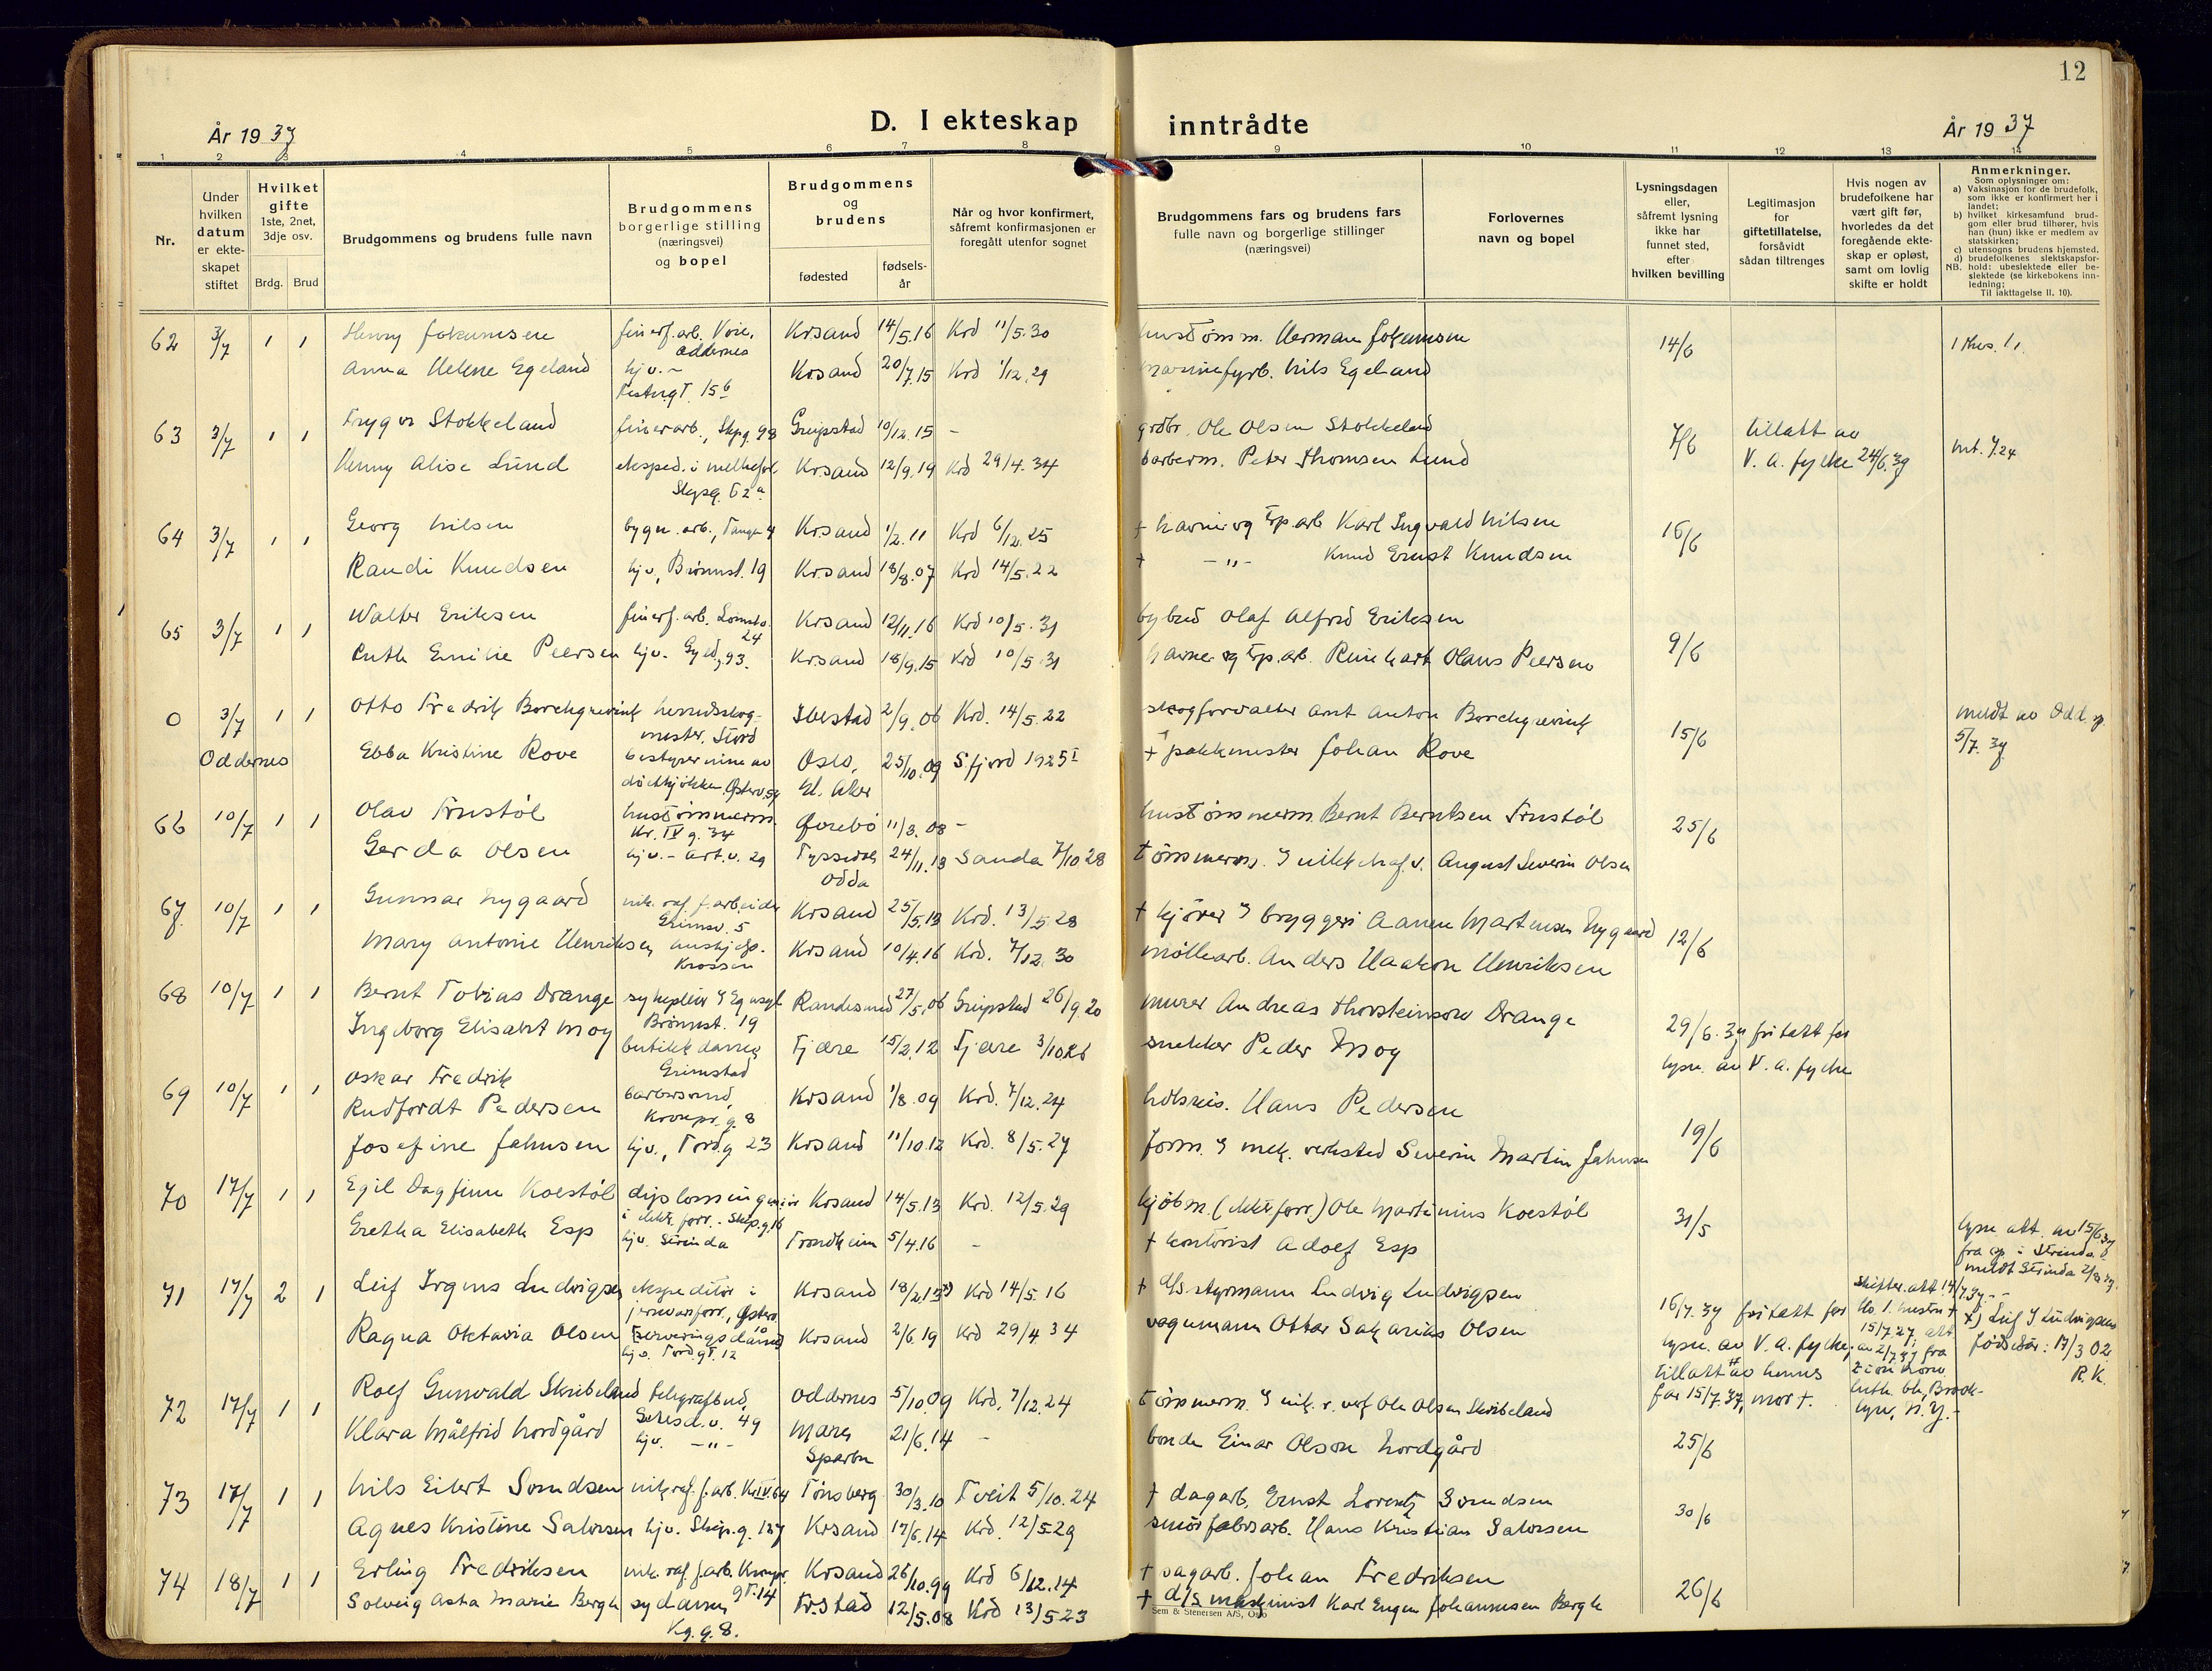 12
År 1937
D. I ekteskap inntrådte
År 1937
1 2 3 4 5 6 7 8 9 10 11 12 13 14
Nr.
Under hvilken datum er ekteskapet stiftet
Hvilket gifte 1ste, 2net, 3dje osv.
Brdg. Brud
Brudgommens og brudens fulle navn
Brudgommens borgerlige stilling (næringsvei) og bopel
Brudgommens og brudens
fødested
fødsels-år
Når og hvor konfirmert, såfremt konfirmasjonen er foregått utenfor sognet
Brudgommens fars og brudens fars fulle navn og borgerlige stillinger (næringsvei)
Forlovernes navn og bopel
Lysningsdagen eller, såfremt lysning ikke har funnet sted, efter hvilken bevilling
Legitimasjon for giftetillatelse, forsåvidt sådan tiltrenges
Hvis nogen av brudefolkene har vært gift før, hvorledes da det foregående ekteskap er opløst, samt om lovlig skifte er holdt
Anmerkninger.
Som oplysninger om:
a) Vaksinasjon for de brudefolk, som ikke er konfirmert her i landet;
b) hvilket kirkesamfund brudgom eller brud tilhører, hvis han (hun) ikke er medlem av statskirken;
c) utensogns brudens hjemsted.
d) brudefolkenes slektskapsforhold: ubeslektede eller beslektede (se kirkebokens innledning;
NB. Til iakttagelse II, 10).
62 3/7 1 1 Henny Jokumsen finerf.arb. Voie, Oddernes Krsand 14/5.16 Krd 11/5.30 hustømm. Herman Jokumsen 14/6
Anna Helene Egeland hjv. - Festn.gt. 15 Krsand 20/7.15 Krd 1/12.29 marinefyrb. Nils Egeland
63 3/7 1 1 Trygve Stokkeland finerarb., Skpg. 98 Greipstad 10/12.15 - grdbr. Ole Olsen Stokkeland 7/6 tillatt av
Henny Alise Lund eksped. i melkefors. Krsand 12/9.19 Krd 29/4.34 barberm. Peter Thomsen Lund V. A. fylke 24/6.37
64 3/7 1 1 Georg Nilsen bygn. arb., Tangen 4 Krsand 1/2.11 Krd 6/12.25 + havne og tp.arb Karl Ingvald Nilsen 16/6
Randi Knudsen hjv, Brønnst. 19 Krsand 18/8.07 Krd 14/5.22 + -"- Knud Ernst Knudsen
65 3/7 1 1 Walter Eriksen finerf.arb. 24 Krsand 12/11.16 Krd 10/5.31 bybud Olaf Alfred Eriksen 9/6
Ruth Emilie Peersen hjv. Gyld. 93. Krsand 18/9.15 Krd 10/5.31 havne og tp.arb. Reinhart Olaus Peersen
0 3/7 Oddernes 1 1 Otto Fredrik Borchgrevink herredsskogmester, Stord Ibestad 2/9.06 Krd. 14/5.22 skogforvalter Arnt Anton Borchgrevink 15/6 meldt av Odd. 5/7.37
Ebba Kristine Rove bestyrerinne av Oslo, Gl. Aker 25/10.09 Sfjord 1925 + pakkmester Johan Rove
66 10/7 1 1 Olav Frustøl hustømmerm. Kr. IV g. 34 Øvrebø 11/3.08 - hustømmerm. Bernt Berntsen Frustøl 25/6
Gerda Olsen hjv. - Art.v. 29 Tyssedal Odda 24/11.13 Sanda 7/10.28 tømmerm. August Severin Olsen
67 10/7 1 1 Gunnar Nygaard nik. raf. f.arbeider Krsand 25/5.13 Krd. 13/5.28 + kjører i bryggeri Aanen Martensen Nygaard 12/6
Mary Antonie Henriksen Krossen Krsand 10/4.16 Krd. 7/12.30 møllearb. Anders Haakon Henriksen
68 10/7 1 1 Bernt Tobias Drange sykepleier Brønnst. 19 Randesund 27/5.06 Greipstad 26/9 20 murer Andreas Thorsteinsen Drange 29/6.37 fritatt for
Ingeborg Elisabet Moy butikkdame Grimstad Fjære 15/2.12 Fjære 3/10 26 snekker Peder Moy lysn. av V. A. fylke
69 10/7 1 1 Oskar Fredrik Rudfordt Pedersen barbersvend, Kronpr. g. 8 Krsand 1/8.09 Krd. 7/12.24 Hans Pedersen 19/6
Josefine Jahnsen hjv., Tord.g 23 Krsand 11/10.12 Krd. 8/5.27 form. i mek. verksted Severin Martin Jahnsen
70 17/7 1 1 Egil Dagfinn Koestøl diplomingeniør i elektr. forr. - Skip.g. 16 Krsand 14/5.13 Krd. 12/5.29 kjøbm. (elektr forr.) Ole Martinius Koestøl 31/5
Gretha Elisabeth Esp hjv. Strinda Trondheim 5/4.16 - + kontorist Adolf Esp lysn. att. av 15/6 37 fra sp. i Strinda. meldt Strinda
71 17/7 2 1 Leif Irgens Ludvigsen ekspeditør i Krsand 18/2. Krd 14/5.16 + d/s.styrmann Ludvig Ludvigsen 16/7.37 fritatt for
Ragna Oktavia Olsen serveringsdame hjv. Tord.gt. 12 Krsand 2/6.19 Krd 29/4 34 vognmann Ottar Sakarias Olsen lysn. av V. A. fylke, tillatt av hennes far 15/7.37, mor +. Skifter. att 14/7.37 - Brooklyn, N.Y. -
x) Leif I Ludvigsens fødselsår: 17/3 02 R.K.
72 17/7 1 1 Rolf Gunvald Skribeland telegrafbud, Setesd.v. 49 Oddernes 5/10.09 Krd. 7/12.24 tømmerm. i nik. r. verf Ole Olsen Skribeland 25/6
Klara Målfrid Nordgård hjv. -"- Mære Sparbu 21/6.14 - bonde Einar Olson Nordgård
73 17/7 1 1 Nils Eilert Svendsen nik. raf. f.arb. Kr.IV.64 Tønsberg 30/3.10 Tveit 5/10.24 + dagarb. Ernst Lorentz Svendsen 30/6
Agnes Kristine Salvesen hjv. Skip.g. 127 Krsand 17/6.14 Krd. 12/5.29 smørfabr.arb. Hans Kristian Salvesen
74 18/7 1 1 Erling Fredriksen nik. raf. f.arb. Kronpr. gt. 14 Krsand 26/10.99 Krd 6/12.14 + sagarb. Johan Fredriksen 26/6
Solveig Asta Marie Bergh sydame, Kg. g. 8. Frstad 12/5.08 Krd 13/5 23 + d/s maskinist Karl Eugen Johannesen Bergh
Sem & Stenersen A/S, Oslo